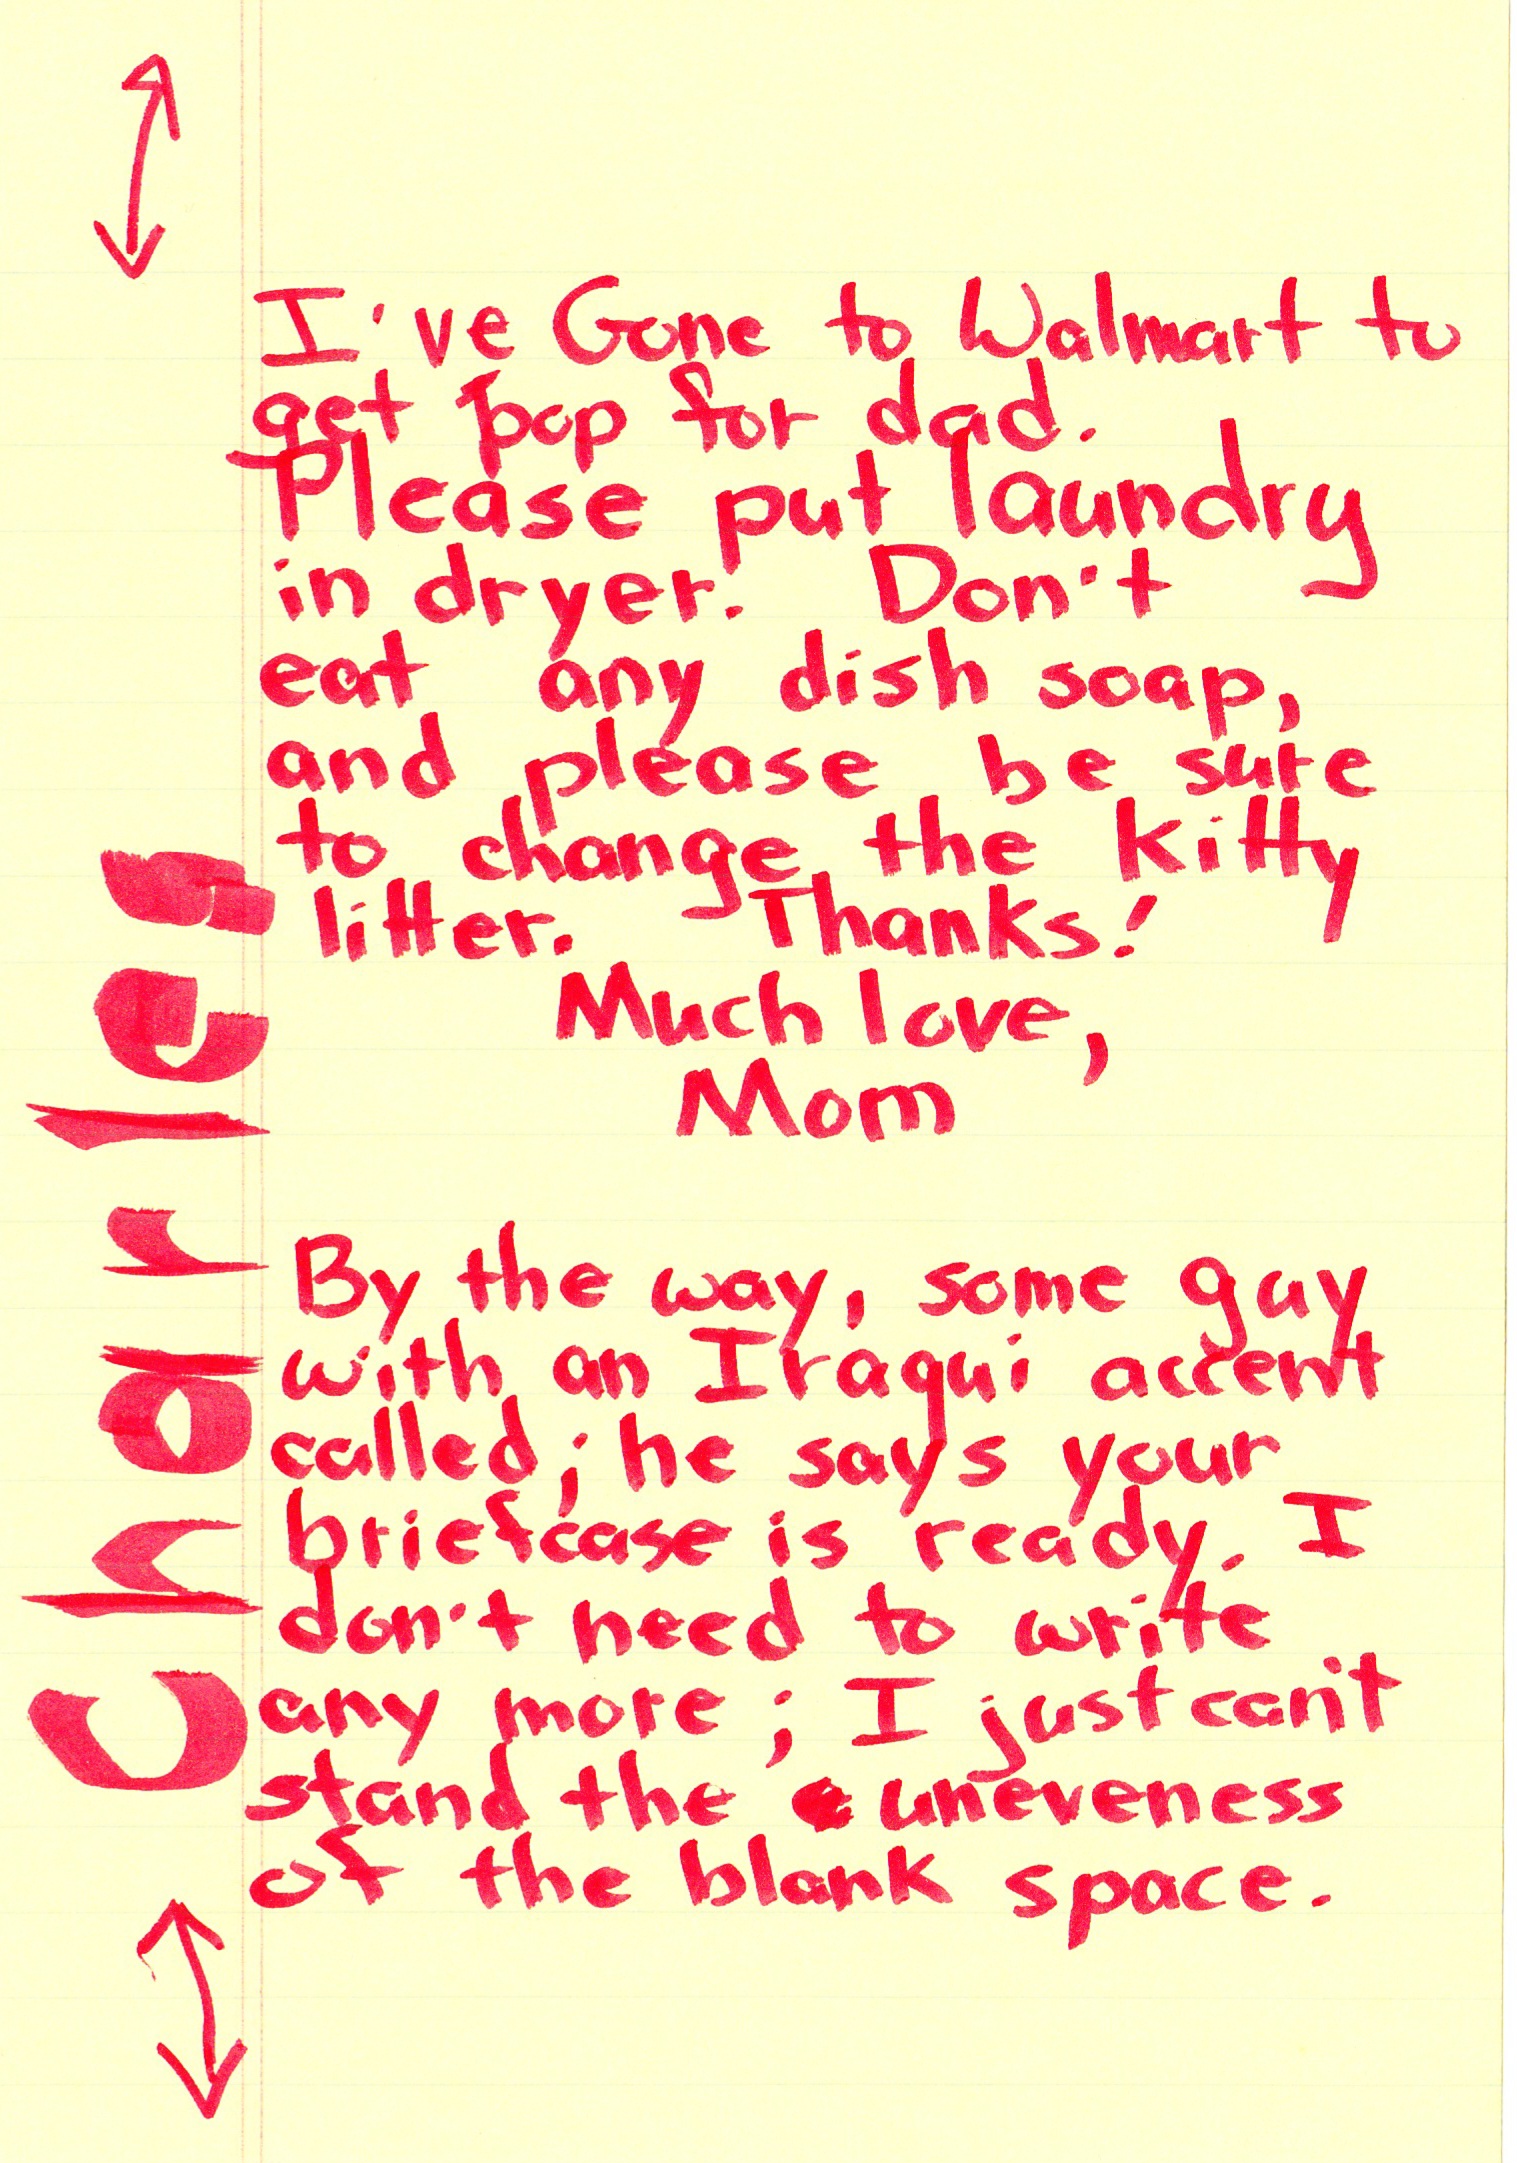 Charles,
I've Gone to Walmart to
get pop for dad.
Please put laundry
in dryer. Don't
eat any dish soap,
and please be sure
to change the kitty
litter. Thanks!
Much love,
Mom
By the way, some guy
with an Iraqui accent
called; he says your
briefcase is ready. I
don't need to write
any more; I just can't
stand the uneveness
of the blank space.